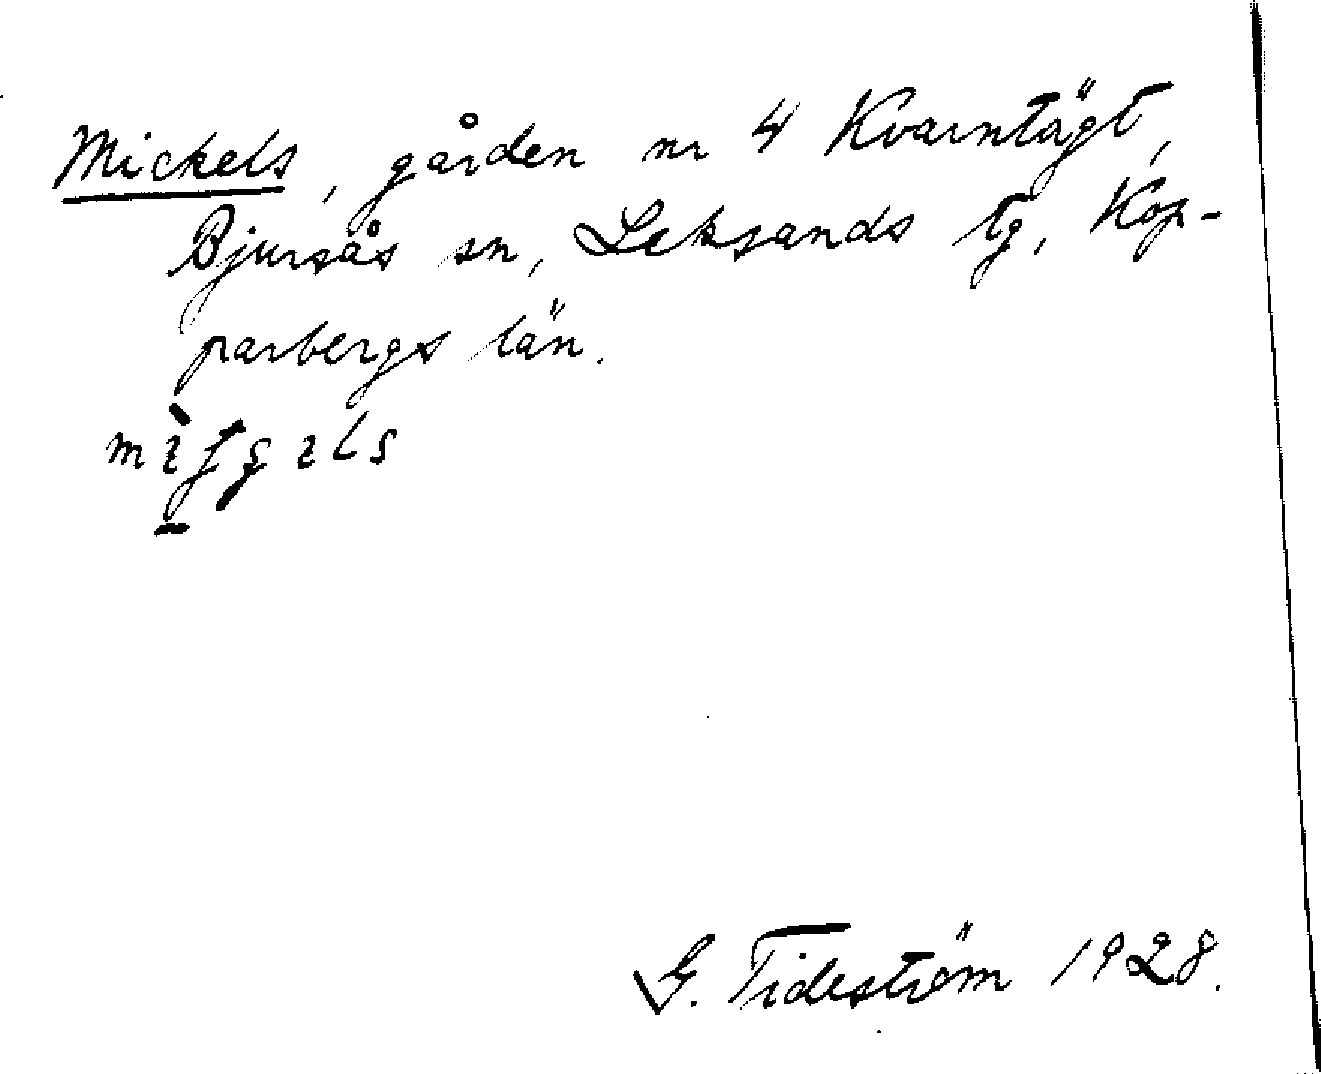 Mickels, gården nr 4 Kvarntägt,
Bjursås sn, Leksands tg, Kop-
parbergs län.
G. Tideström 1928.